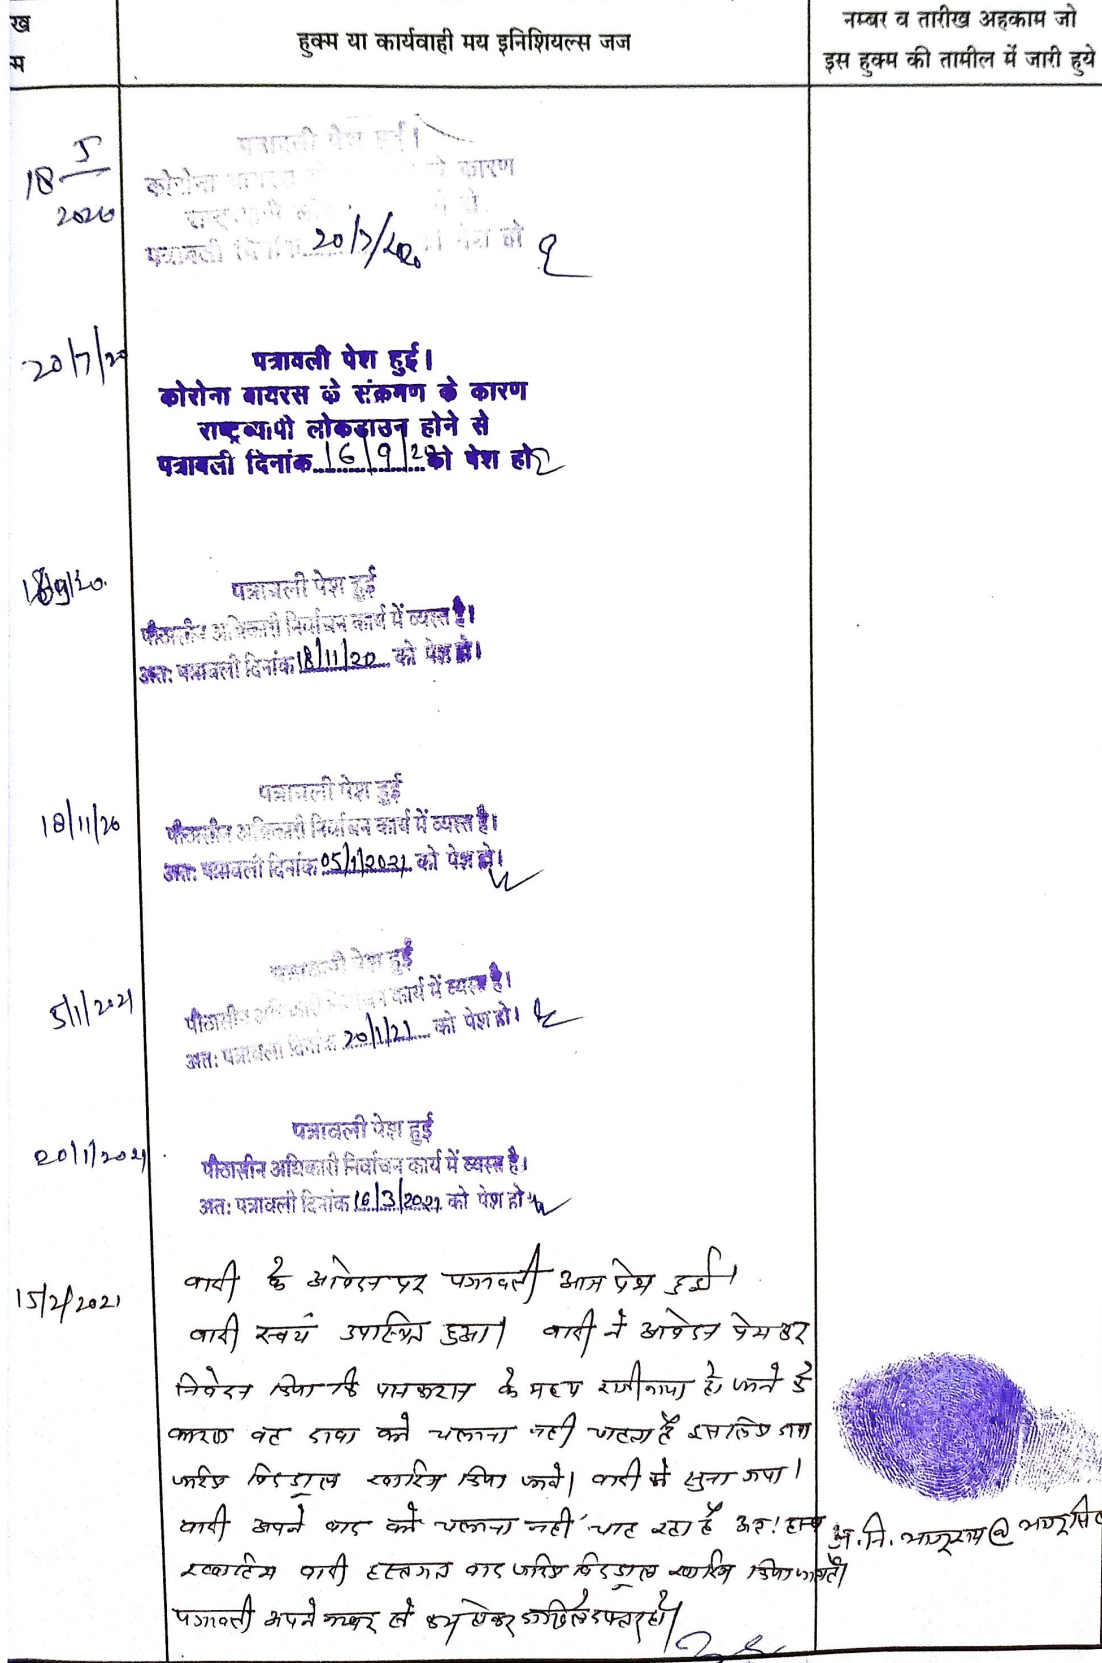 ख
म
हुक्म या कार्यवाही मय इनिशियल्स जज
नम्बर व तारीख अहकाम जो
इस हुक्म की तामील में जारी हुये
18 5/2020
पत्रावली पेश हुई।
कोरोना वायरस के कारण
पत्रावली दिनांक 20/7/2020 को पेश हो
20/7/20
पत्रावली पेश हुई।
कोरोना वायरस के संक्रमण के कारण
राष्ट्रव्यापी लोकडाउन होने से
पत्रावली दिनांक 16/9/20 को पेश हो
/9/20
पत्रावली पेश हुई
पीठासीन अधिकारी निर्वाचन कार्य में व्यस्त है।
अतः पत्रावली दिनांक 18/11/20 को पेश हो।
18/11/20
पत्रावली पेश हुई
पीठासीन अधिकारी निर्वाचन कार्य में व्यस्त है।
अतः पत्रावली दिनांक 05/1/2021 को पेश हो।
5/1/2021
पत्रावली पेश हुई
पीठासीन अधिकारी निर्वाचन कार्य में व्यस्त है।
अतः पत्रावली दिनांक 20/1/21 को पेश हो।
20/1/2021
पत्रावली पेश हुई
पीठासीन अधिकारी निर्वाचन कार्य में व्यस्त है।
अतः पत्रावली दिनांक 16/3/2021 को पेश हो
15/2/2021
वादी के आवेदन पर पत्रावली आज पेश हुई।
वादी स्वयं उपस्थित हुआ। वादी ने आवेदन पेश कर
निवेदन किया कि पक्षकारान के मध्य राजीनामा हो जाने के
कारण वह दावा को चलाना नहीं चाहता है इसलिए दावा
जरिए विड्राल खारिज किया जावे। वादी को सुना गया।
वादी अपने वाद को चलाना नहीं चाह रहा है अतः
वादी हस्तगत वाद जरिए विड्राल खारिज किया जाता है।
पत्रावली अपने नम्बर से कम होकर दाखिल दफ्तर हो।
अ.नि. @